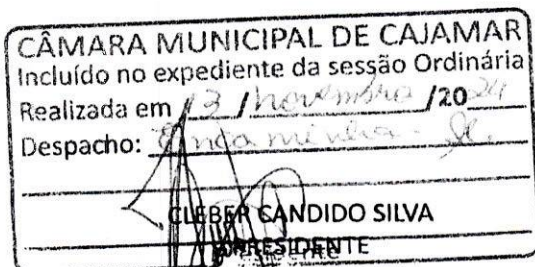 CÂMARA MUNICIPAL DE CAJAMAR
Incluído no expediente da sessão Ordinária
Realizada em 13 / novembro /20 24
Despacho: Encaminha-se.
CLEBER CANDIDO SILVA
PRESIDENTE